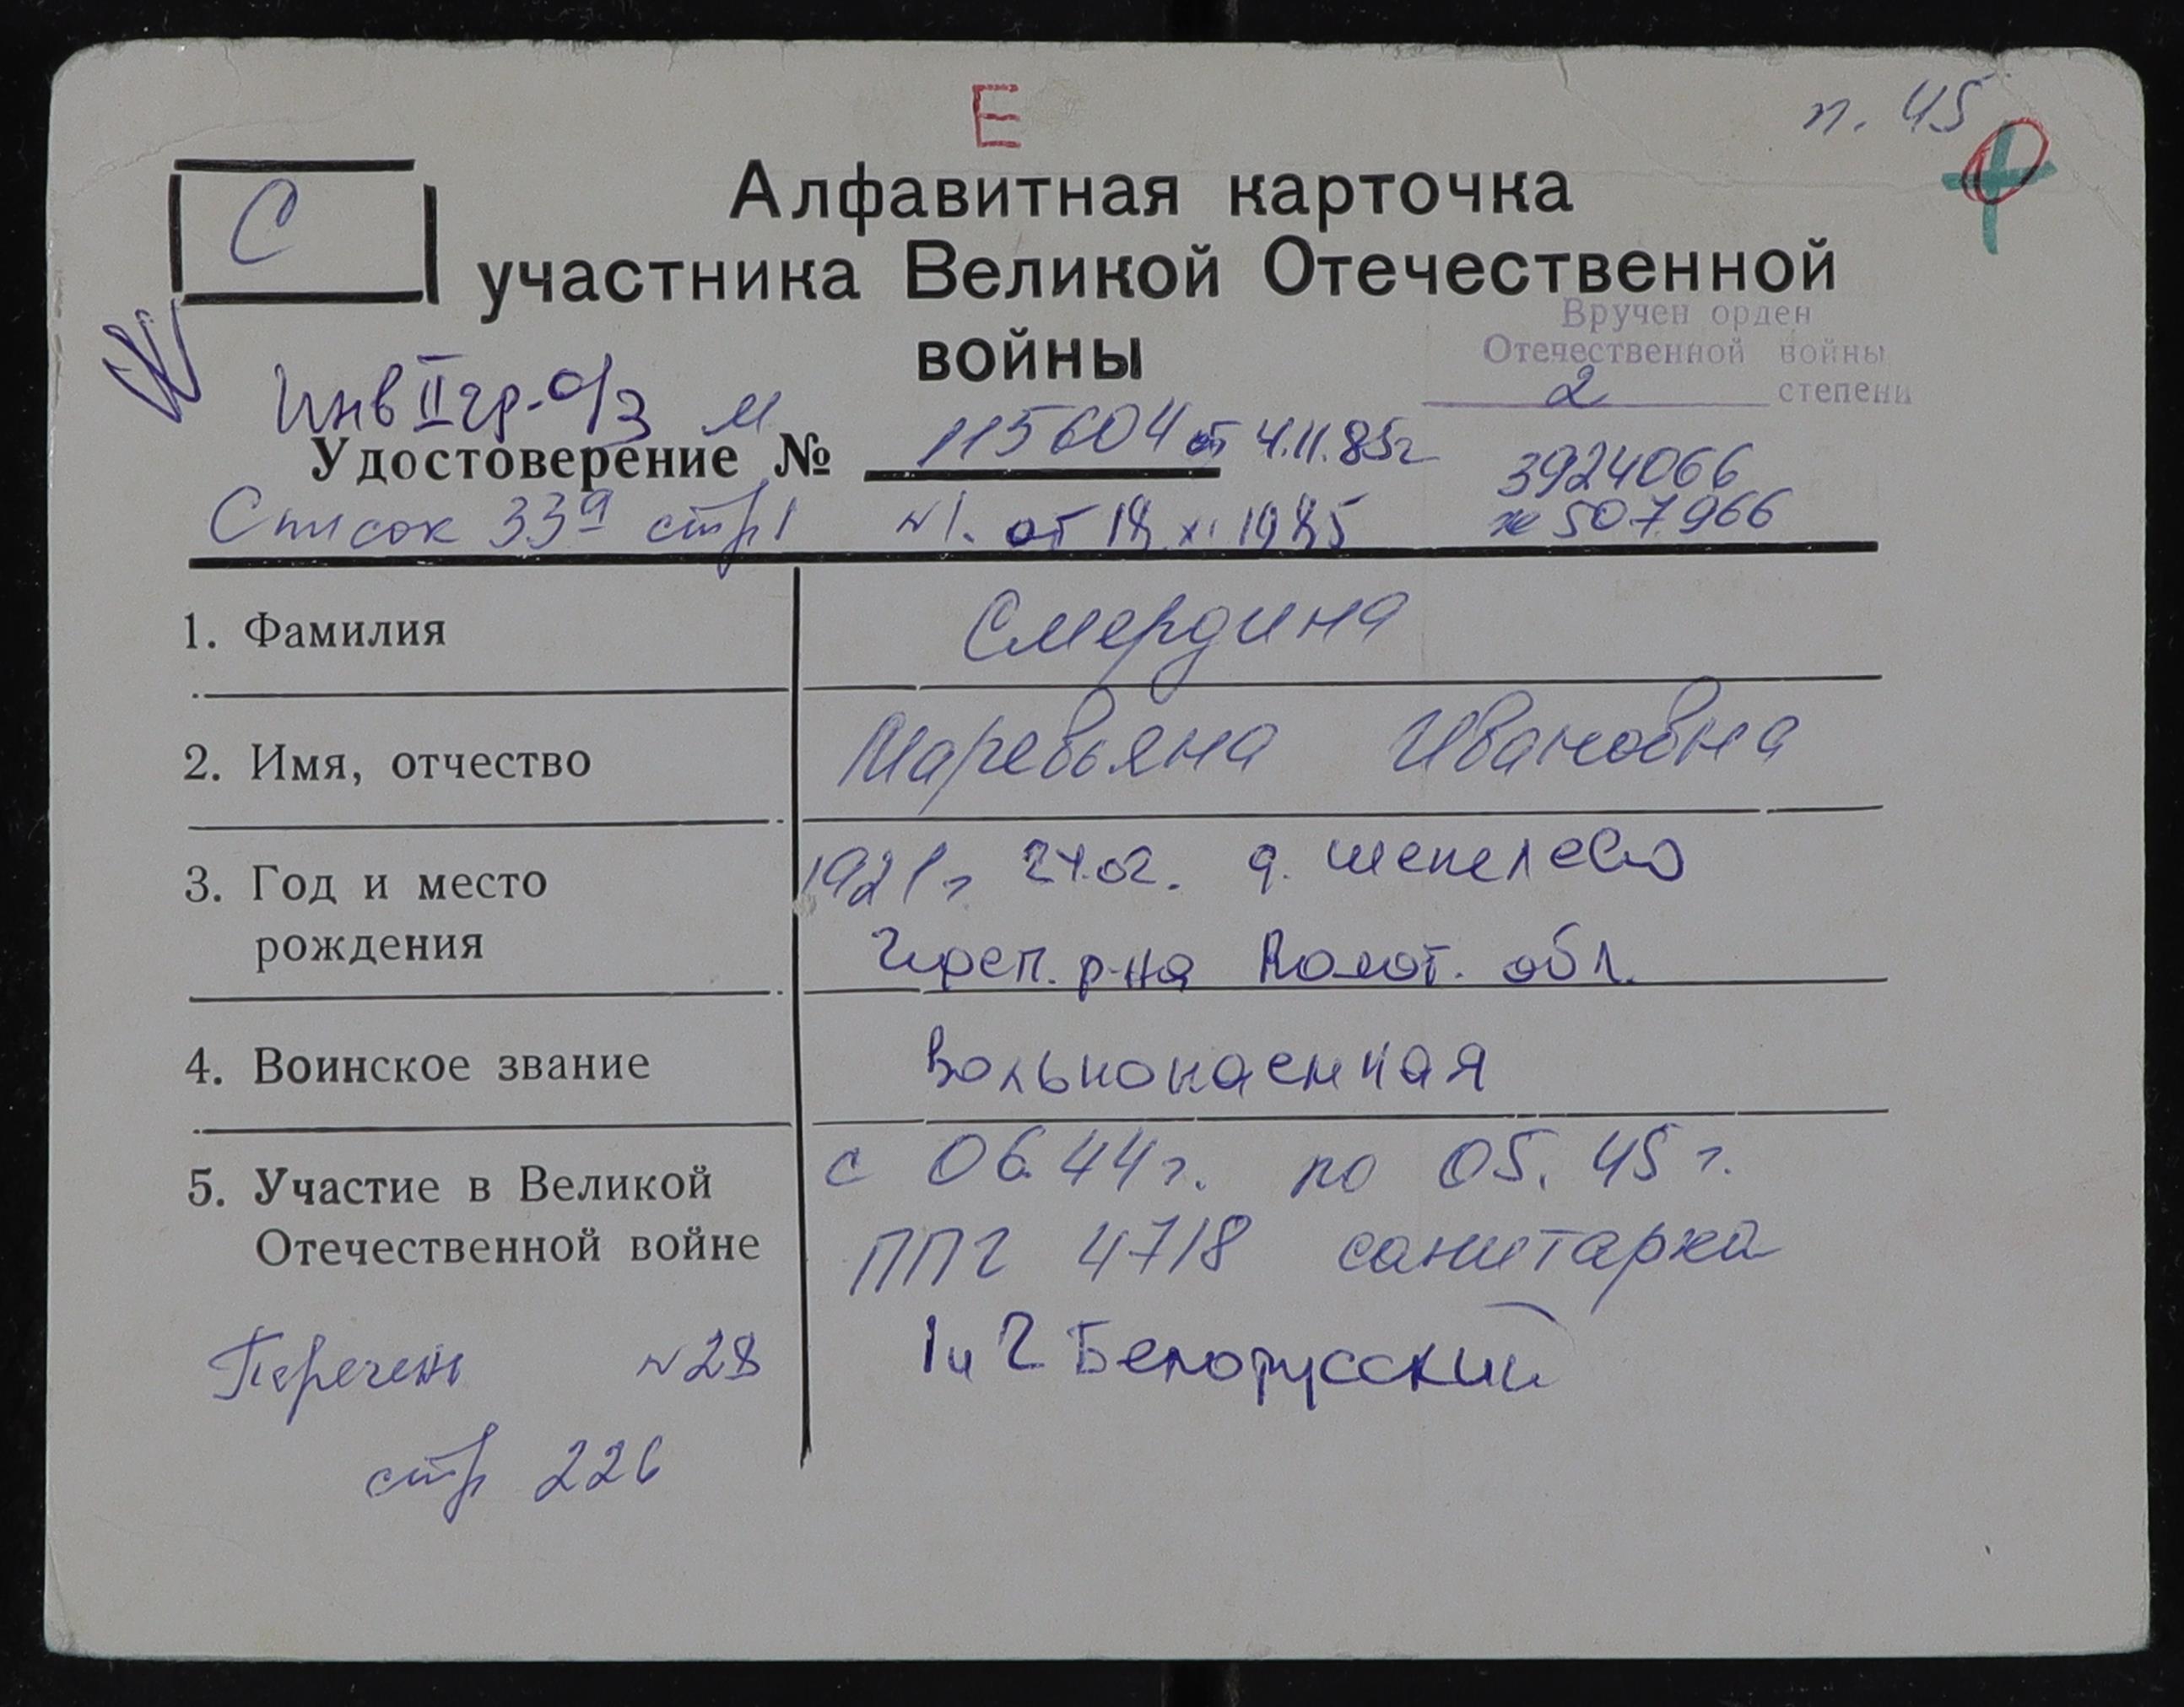 Е
п. 45
С
Алфавитная карточка
участника Великой Отечественной
войны
Вручен орден
Отечественной войны
2 степени
Инв II гр. о/з м
Удостоверение № 115604 от 4.11.85г
3924066
Список 33а стр 1 №1. от 18 XI 1985
507966
1. Фамилия
Смердина
2. Имя, отчество
Маревьяна Ивановна
3. Год и место
рождения
1921г 24.02. д. Шепелево
Череп. р-на Волог. обл.
4. Воинское звание
Вольнонаемная
5. Участие в Великой
Отечественной войне
с 06.44г. по 05.45г.
ППГ 4718 санитарка
1 и 2 Белорусский
Перечень №28
стр 226